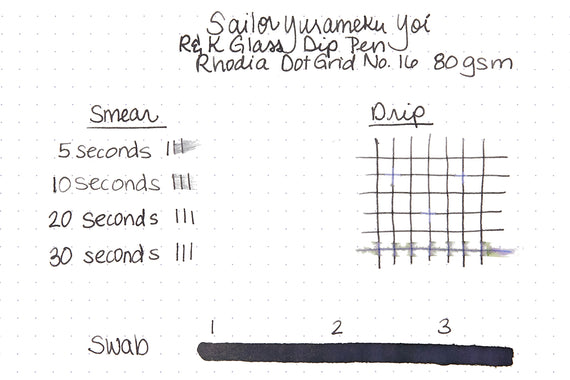 Sailor Yurameku Yoi
R&K Glass Dip Pen
Rhodia Dot Grid No. 16 80gsm
Smear Drip
5 seconds
10 seconds
20 seconds
30 seconds
1 2 3
Swab